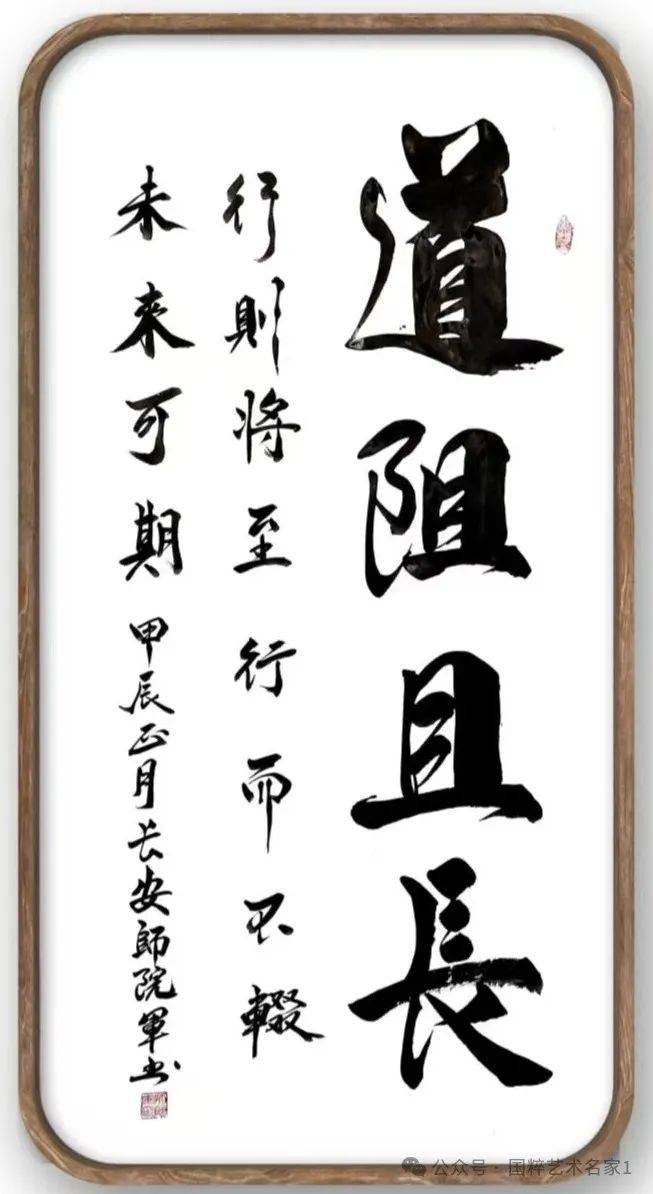 道阻且長
行則將至行而不輟
未來可期
甲辰正月长安師院軍书
公众号·国粹艺术名家1